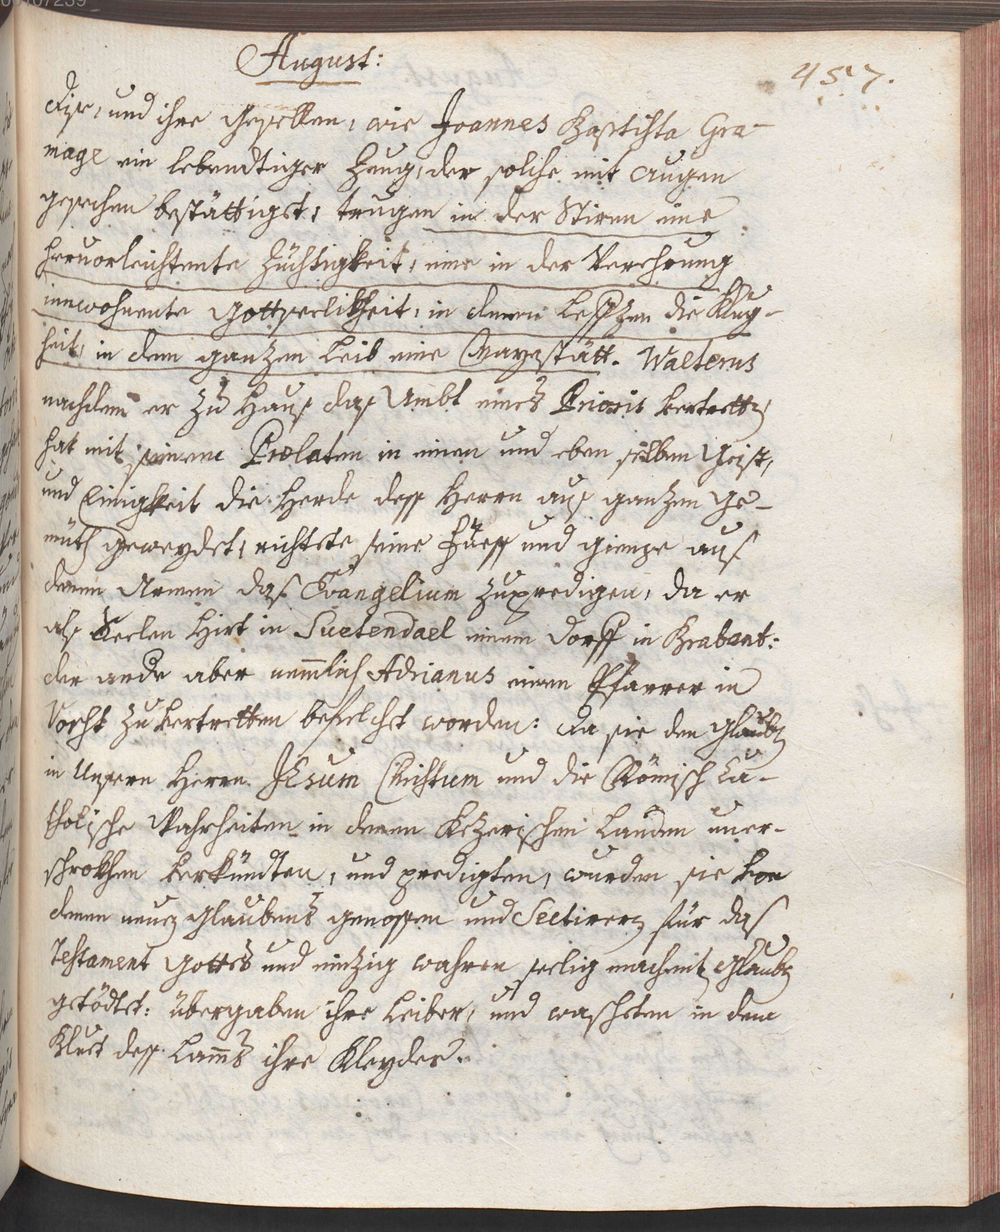 00107239
August:
457.
dise, und ihre gesellen, wie Joannes Baptihsta Gra-
mage ein lebendtiger Zeug, der solche mit augen
gesechen bestättiget, trugen in der Stiren eine
heruorleichtente Züchtigkeit, eine in der Verehrung
innwohnente Gottseelikheit, in denen Lefftzen die Klug-
heit, in dem gantzen Leib eine Mayestätt. Walterus
nachdem er zu Hauß daß Ambt eines Prioris vertretten
hat mit seinem Prælaten in einen und eben selben Geist,
und Einigkeit die Herde deß Herrn auß gantzen ge-
müth geweydet, richtete seine Füeß und gienge auß
denen Armen daß Evangelium zupredigen, da er
alß Seelen Hirt in Suetendael einem Dorff in Brabant:
der ande aber nemlich Adrianus einen Pfarrer in
Vocht zu vertretten befelchet worden: da sie den Glaubn
in Unsern Herrn JEsum CHristum und die Römisch Ca-
tholische Wahrheiten in denen Kezerischen Landen uner-
schrokhen verkündten, und predigten, wurden sie von
denen neuen Glaubens genossen und Sectirern für daß
Testament Gottes und eintzig wahren seelig machenten Glaubn
getödtet: übergaben ihre Leiber, und waschten in dem
Bluet deß Lamms ihre Kleyder.